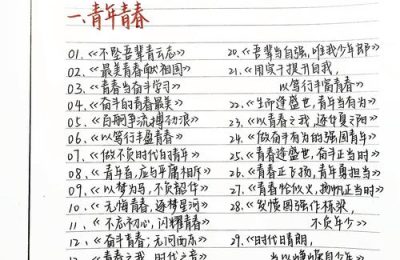 一.青年青春
01.《不坠吾辈青云志》
02.《最美青春献祖国》
03.《青春当奋斗学习》
04.《奋斗的青春最美》
05.《百舸争流搏初浪》
06.《以笃行丰盈青春》
07.《做不负时代的青年》
08.《青年者,应与平庸相斥》
09.《以梦为马,不负韶华》
10.《无悔青春,逐梦星河》
11.《不忘初心,闪耀青春》
12.《奋斗青春;无问西东》
《青春之我,时代之音》
20.《吾辈当自强,唯我少年郎》
21.《用实干提升自我,
以笃行丰富青春》
22.《生所逢盛世,青年当有为》
23.《以青春之我,逐华夏之阳》
24.《做奋斗有为的强国青年》
25.《青春逢盛世,奋斗正当时》
26.《青春正飞扬,青年勇担当》
27.《青春恰似火,扬帆正当时》
28.《发愤图强作栋梁,
不负年少》
29.《时代日晴朗,
当以慷慨自少年》